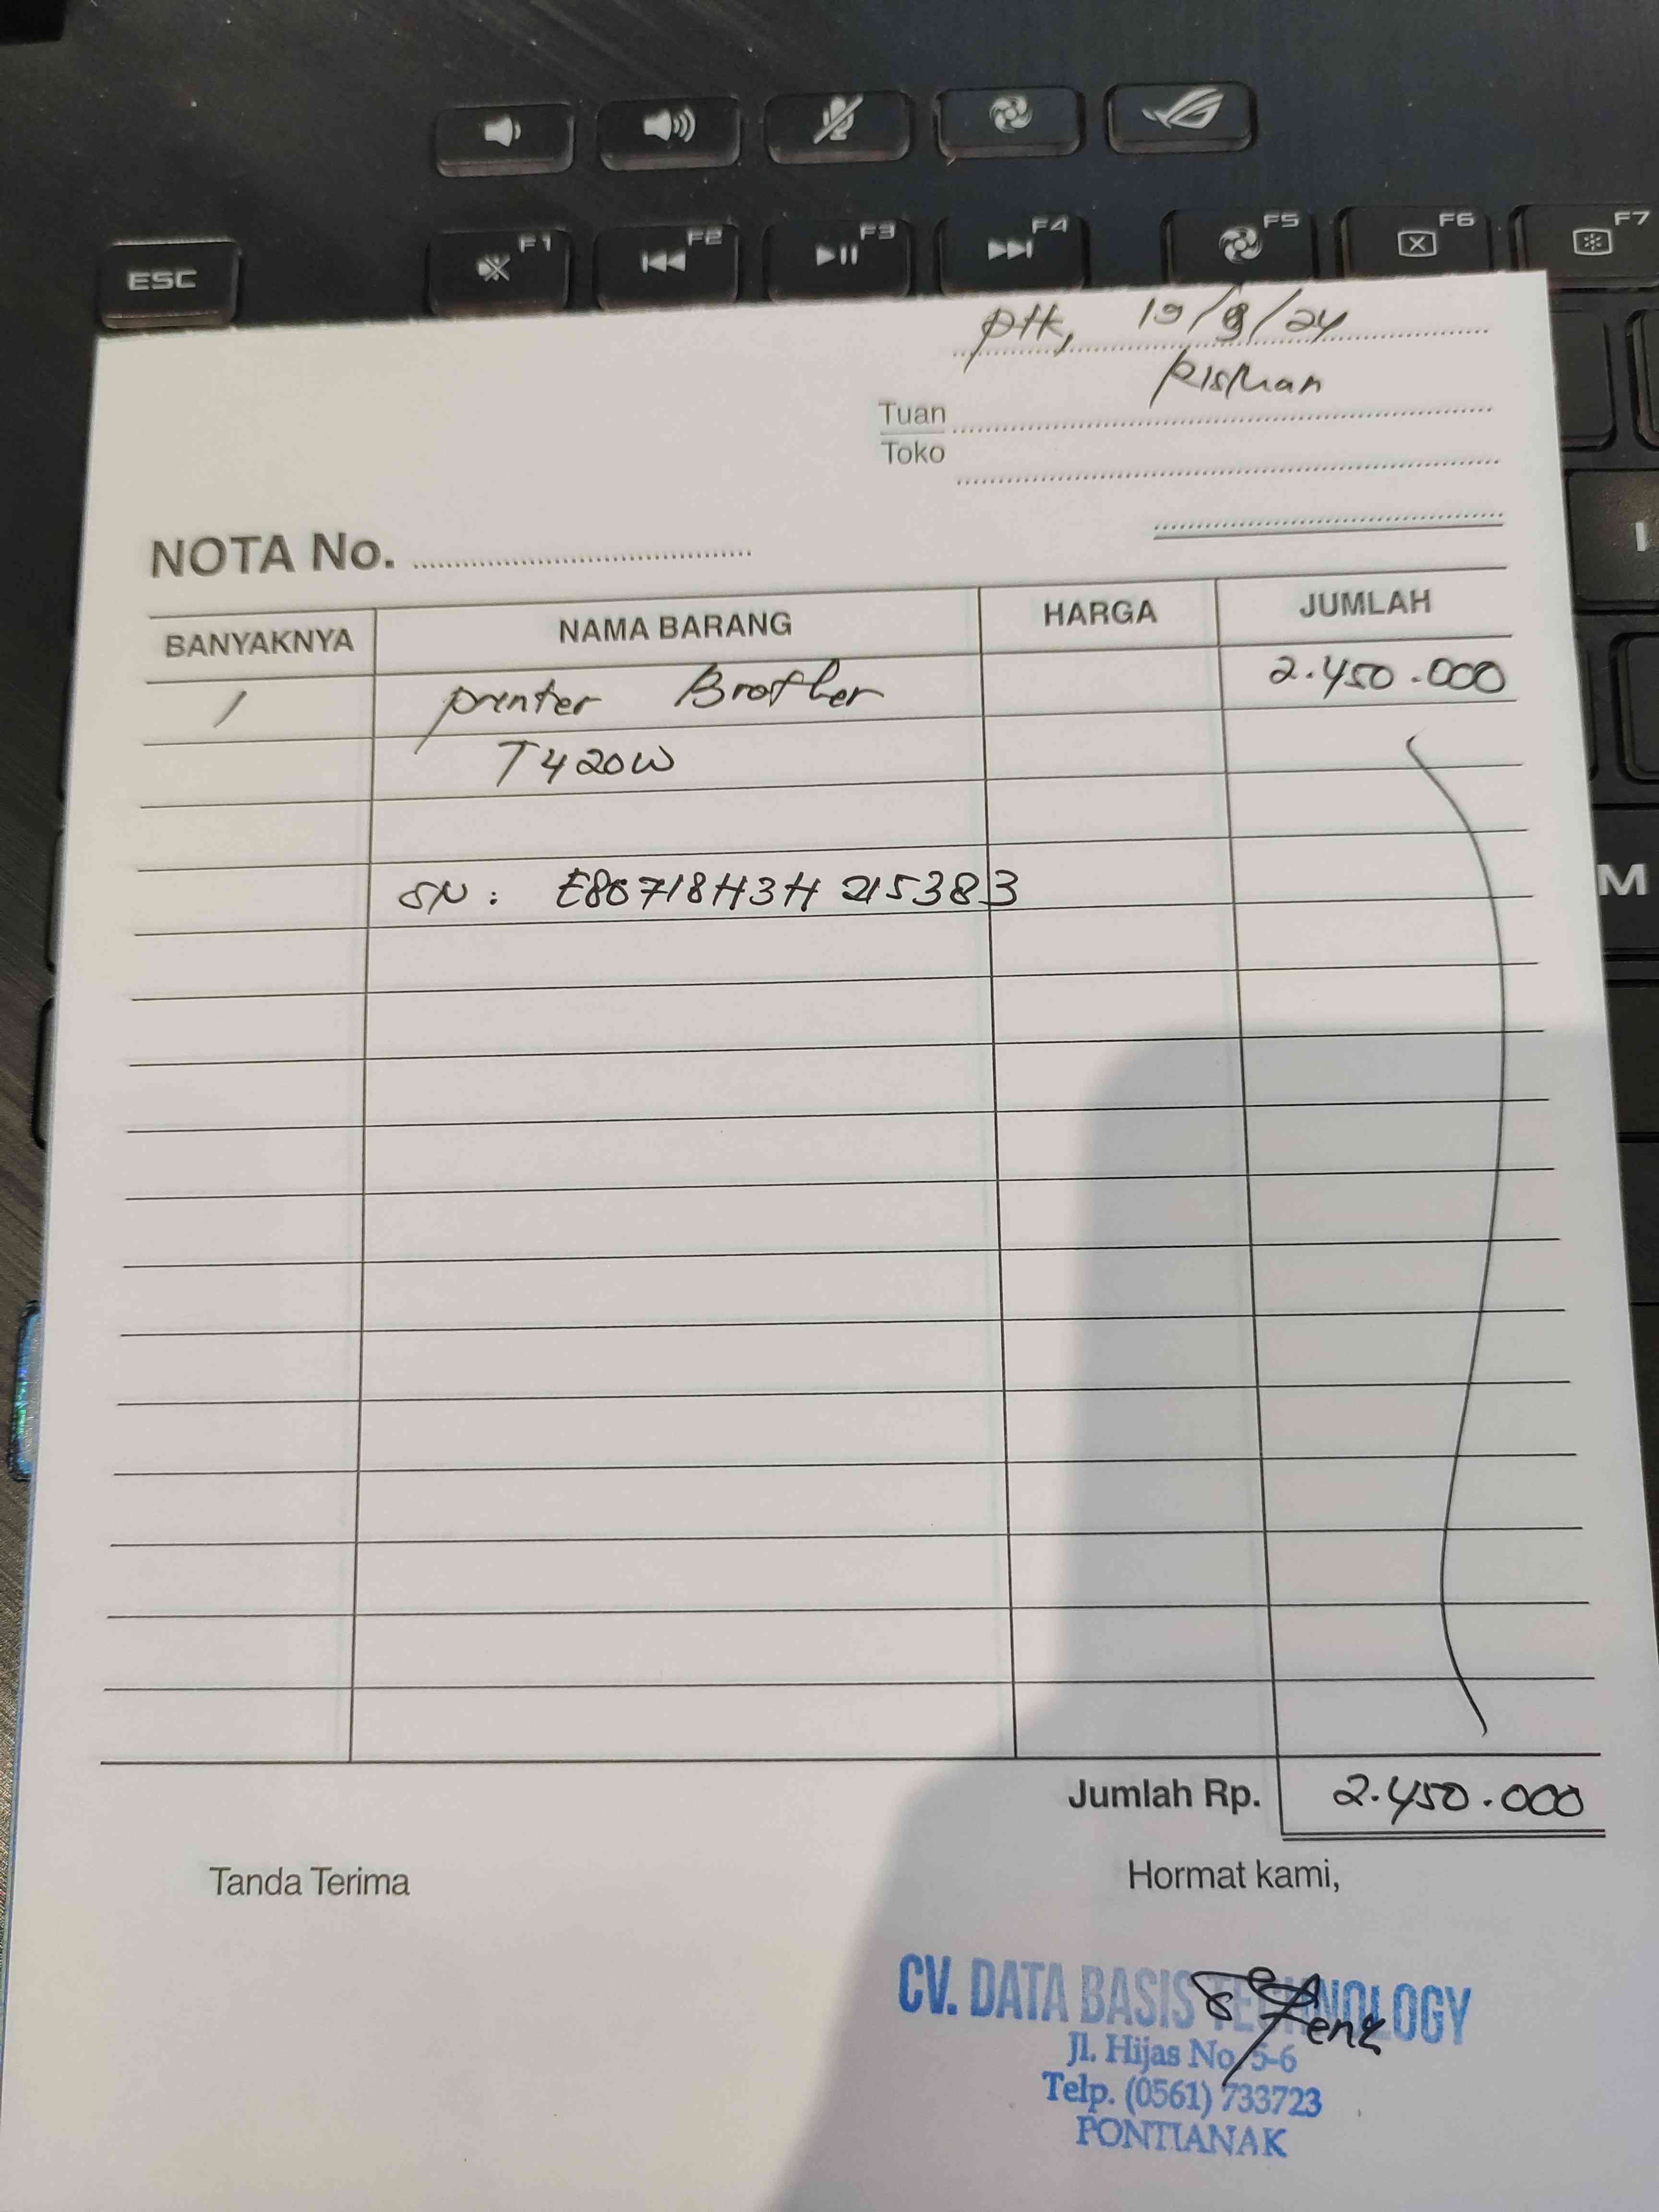 F1
F2
F3
F4
F5
F6
F7
ESC
M
ptk, 19/8/24
Tuan Risman
Toko
NOTA No.
BANYAKNYA NAMA BARANG HARGA JUMLAH
1 printer Brother 2.450.000
T420W
SN : E80718H3H 215383
Jumlah Rp. 2.450.000
Tanda Terima Hormat kami,
CV. DATA BASIS TECHNOLOGY
Jl. Hijas No. 5-6
Telp. (0561) 733723
PONTIANAK